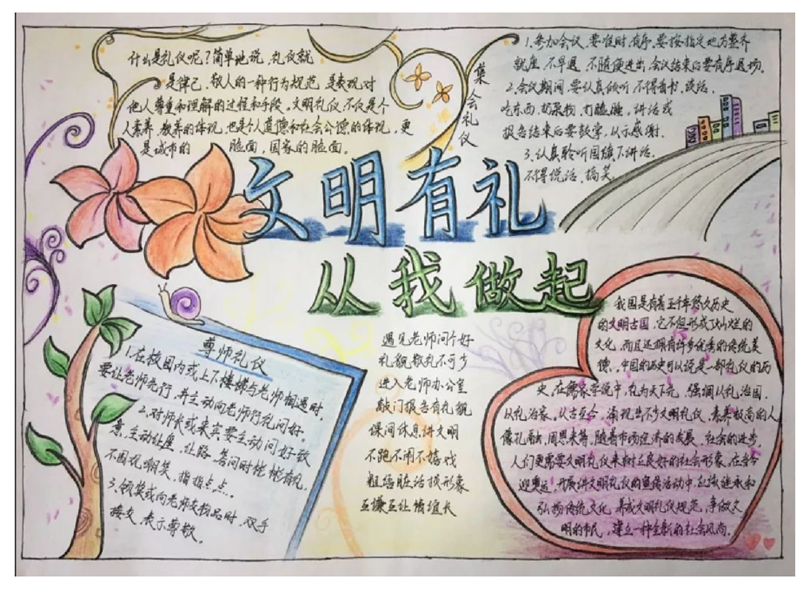 什么是礼仪呢？简单地说，礼仪就
是律己、敬人的一种行为规范，是表现对
他人尊重和理解的过程和手段。文明礼仪，不仅是个
人素养、教养的体现，也是个人道德和社会公德的体现，更
是城市的 脸面，国家的脸面。
集会礼仪
1、参加会议，要准时、有序，要按指定地方整齐
就座，不早退，不随便进出，会议结束后要有序退场。
2、会议期间，要认真的听，不得看书、谈话、
吃东西、打瞌睡，讲话或
报告结束后要鼓掌，以示感谢。
3、认真聆听 不讲话。
不得说话、搞笑
文明有礼
从我做起
尊师礼仪
1、在校园内或上下楼梯与老师相遇时，
要让老师先行，并主动向老师行礼问好。
2、对师长或来宾要主动问好致
意，主动让座、让路，答问时彬彬有礼，
不围观嘲笑、指指点点。
3、领奖或向老师交物品时，双手
接交，表示尊敬。
遇见老师问个好
礼貌敬礼不可少
进入老师办公室
敲门报告有礼貌
课间休息讲文明
不跑不闹不嬉戏
粗痞脏话损形象
互谦互让情谊长
我国是有着五千年悠久历史
的文明古国，它不但形成了灿烂的
文化，而且还拥有许多优秀的传统美
德，中国的历史可以说是一部礼仪的历
史，在儒家学说中，礼为天下先，强调以礼治国，
以礼治家，从古至今，涌现出不少文明礼仪、素养极高的人
像孔融、周恩来等，随着市场经济的发展，社会的进步，
人们更需要文明礼仪来树立良好的社会形象，在当今
迎奥运，开展讲文明礼仪的宣传活动中，应继承和
弘扬传统文化，养成文明礼仪规范，争做文
明的市民，建立一种全新的社会风尚。